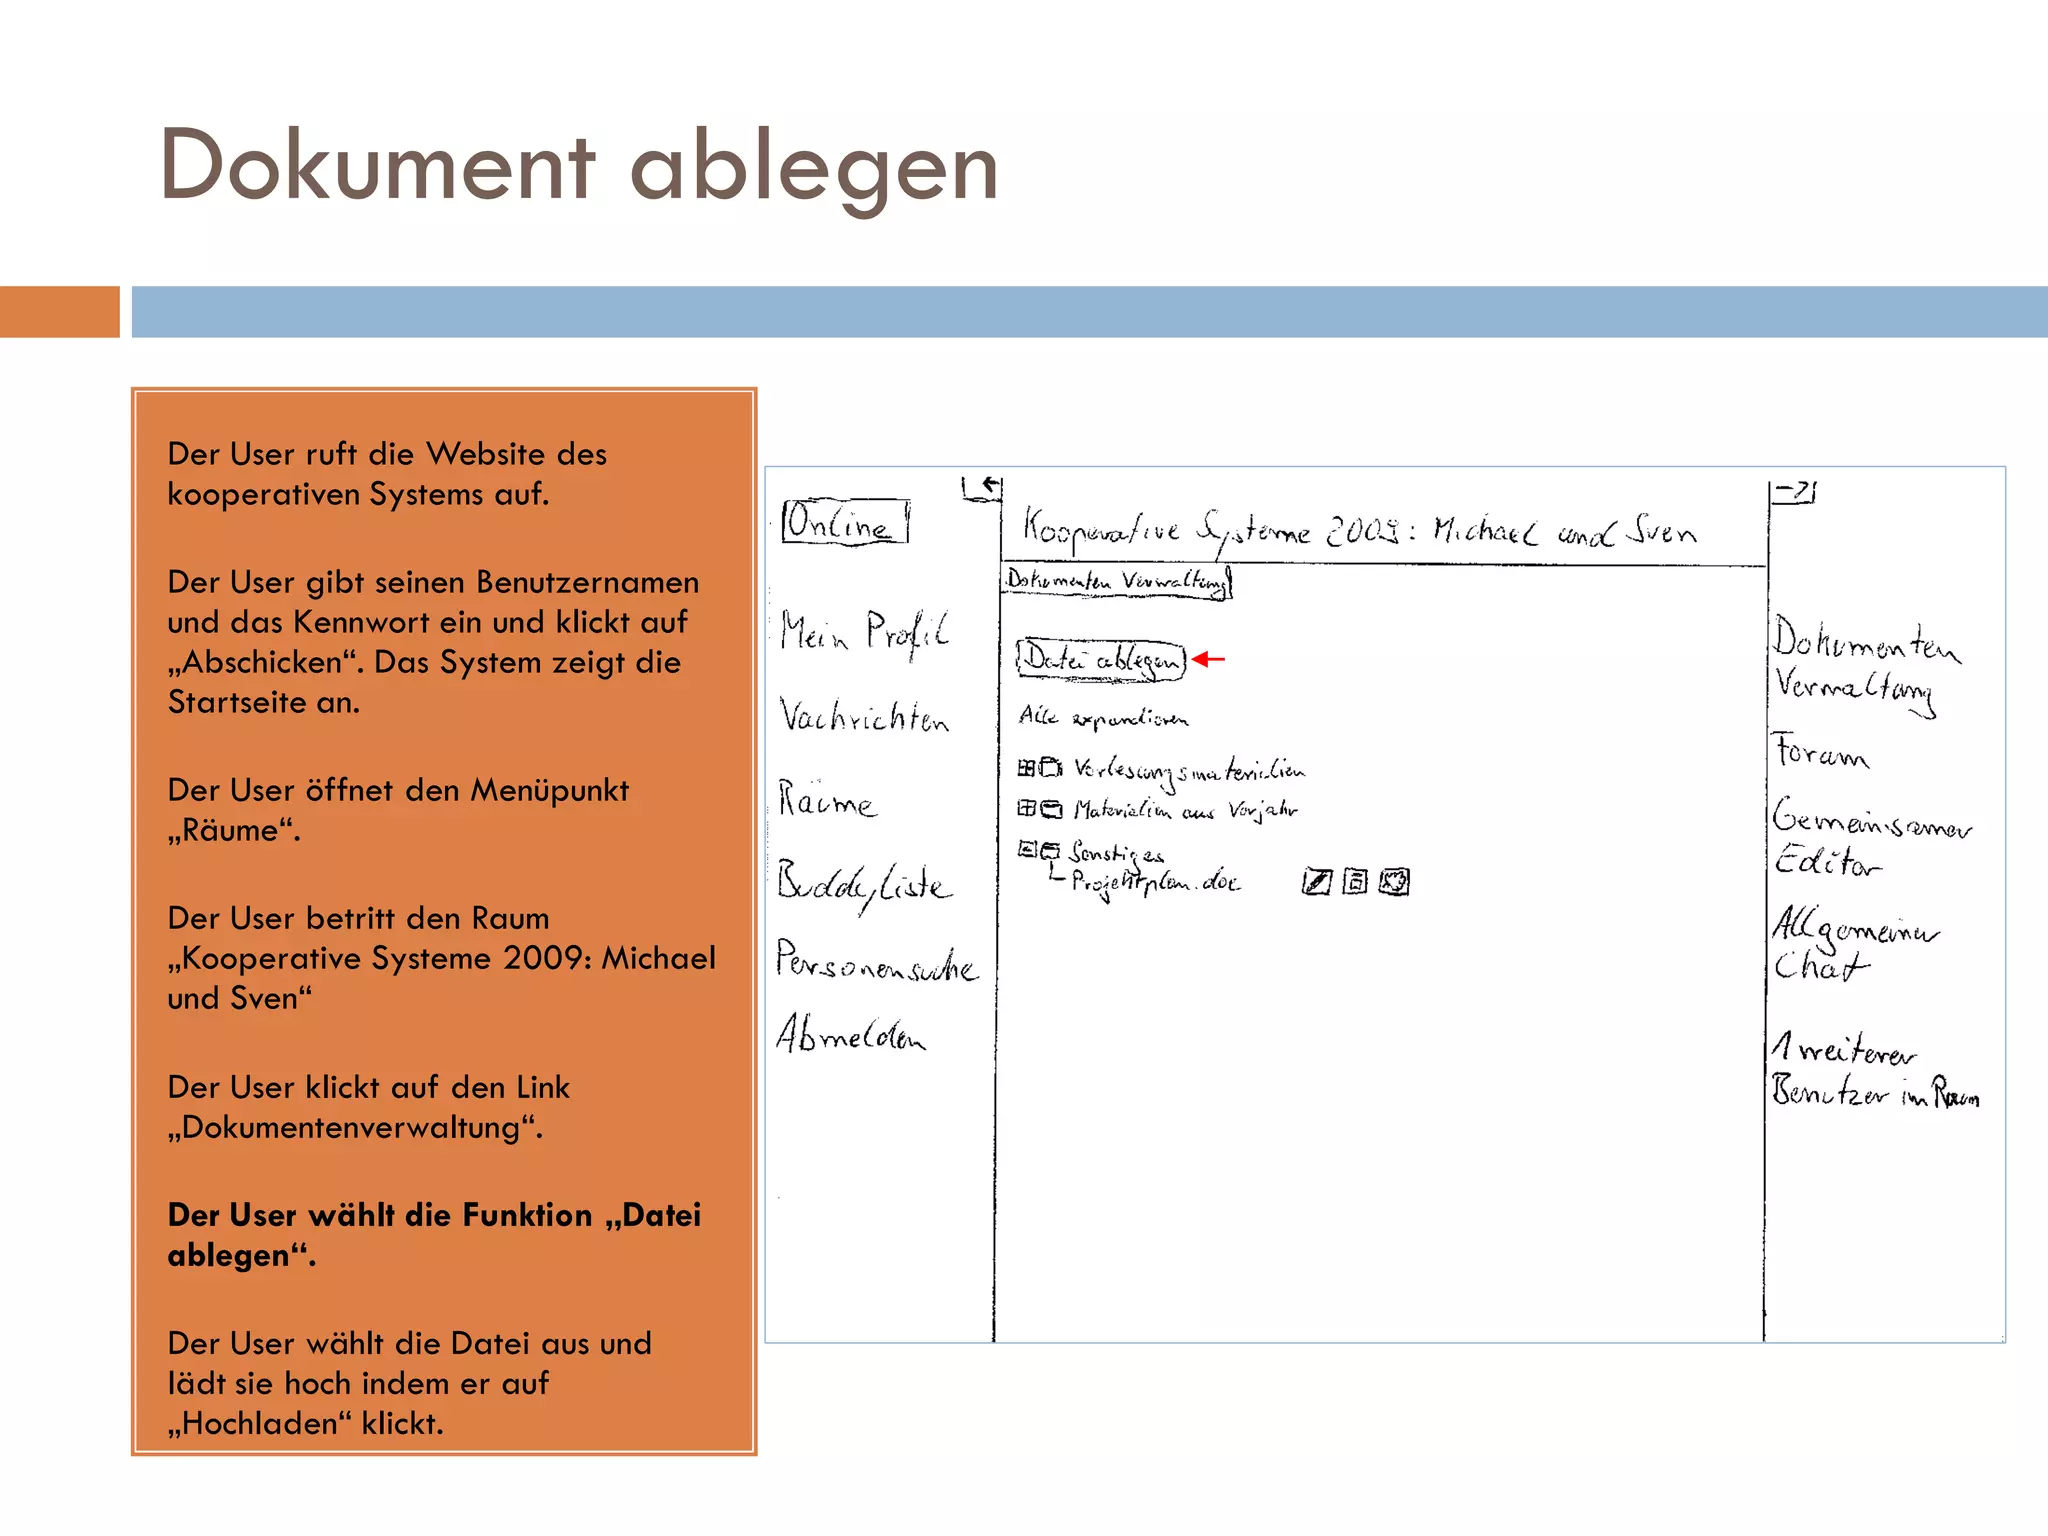 Dokument ablegen
Der User ruft die Website des
kooperativen Systems auf.
Der User gibt seinen Benutzernamen
und das Kennwort ein und klickt auf
„Abschicken“. Das System zeigt die
Startseite an.
Der User öffnet den Menüpunkt
„Räume“.
Der User betritt den Raum
„Kooperative Systeme 2009: Michael
und Sven“
Der User klickt auf den Link
„Dokumentenverwaltung“.
Der User wählt die Funktion „Datei
ablegen“.
Der User wählt die Datei aus und
lädt sie hoch indem er auf
„Hochladen“ klickt.
Online
Mein Profil
Nachrichten
Räume
Buddyliste
Personensuche
Abmelden
Kooperative Systeme 2009: Michael und Sven
Dokumenten Verwaltung
Datei ablegen
Alle expandieren
Vorlesungsmaterialien
Materialien aus Vorjahr
Sonstiges
Projektplan.doc
Dokumenten
Verwaltung
Forum
Gemeinsamer
Editor
Allgemeiner
Chat
1 weiterer
Benutzer im Raum